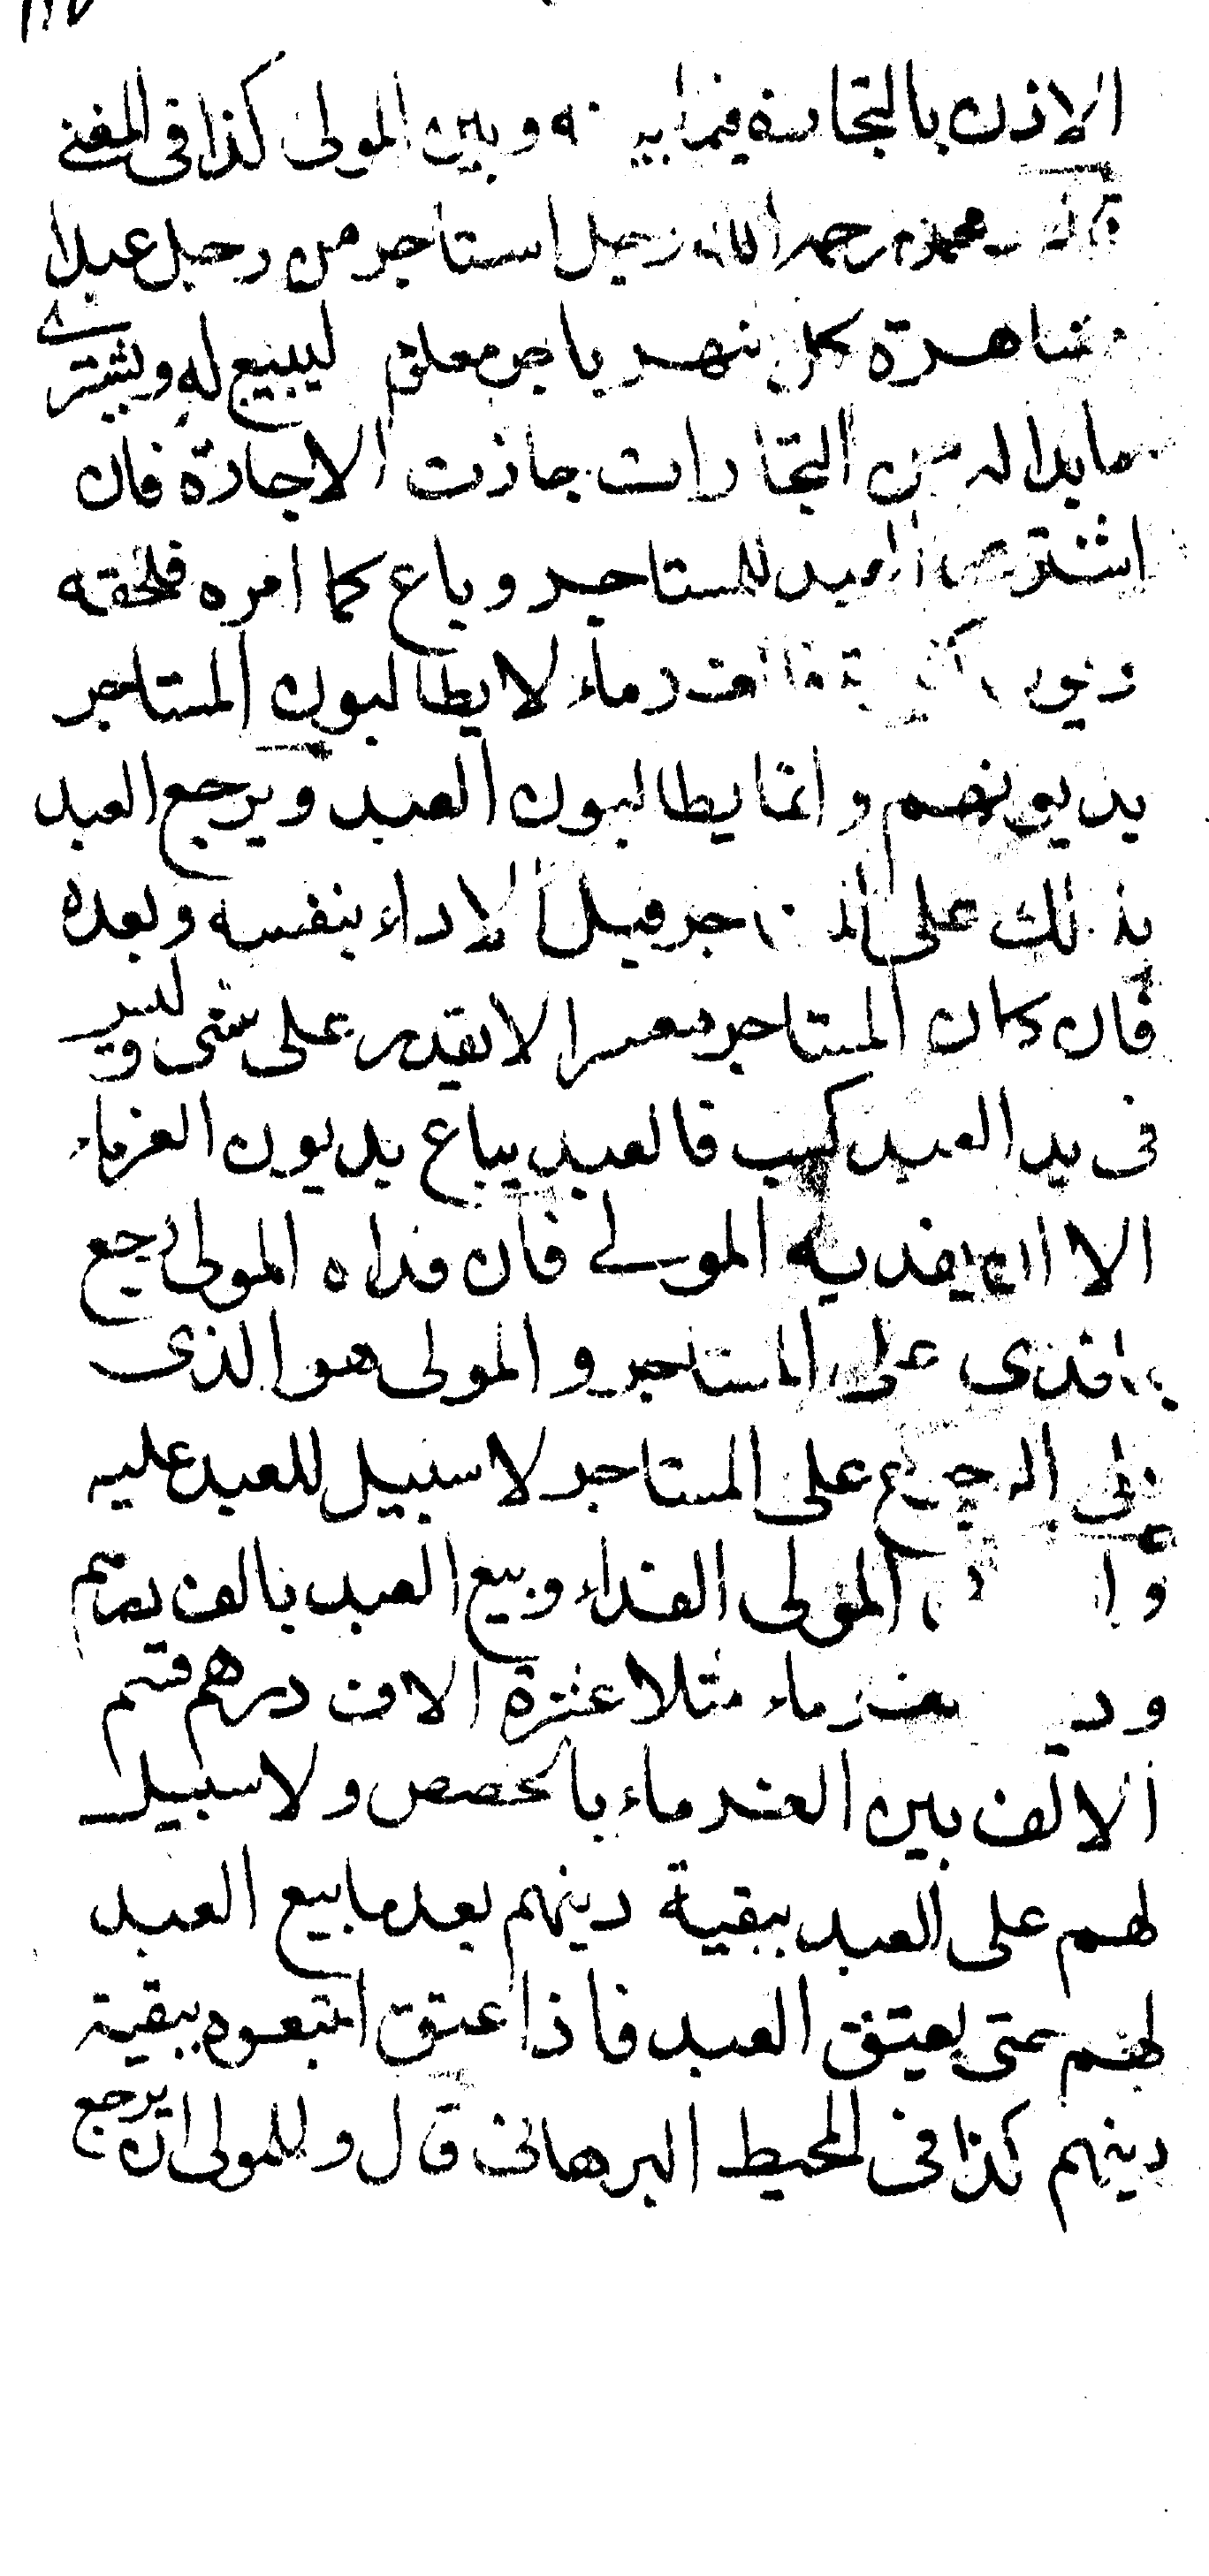 الاذن بالتجارة فيما بينه وبين المولى كذا فى المغنى
قال محمد رحمه الله رجل استاجر من رجل عبدا
مشاهرة كل شهر باجر معلوم ليبيع له ويشترى
ما بدا له من التجارات جازت الاجارة فان
اشترى العبد للمستاجر وباع كما امره فلحقه
ديون كثيرة فالغرماء لا يطالبون المستاجر
بديونهم وانما يطالبون العبد ويرجع العبد
بذلك على المستاجر قبل الاداء بنفسه وبعده
فان كان المستاجر معسرا لا يقدر على شى وليس
فى يد العبد كسب فالعبد يباع بديون الغرماء
الا ان يفديه المولى فان فداه المولى رجع
بما فدى على المستاجر والمولى هو الذى
يلى الرجوع على المستاجر لا سبيل للعبد عليه
وا المولى الفداء وبيع العبد بالف درهم
ود الغرماء مثلا عشرة الاف درهم قسم
الالف بين الغرماء بالحصص ولا سبيل
لهم على العبد ببقية دينهم بعد ما بيع العبد
لهم حتى يعتق العبد فاذا عتق اتبعوه ببقية
دينهم كذا فى المحيط البرهانى قال وللمولى ان يرجع